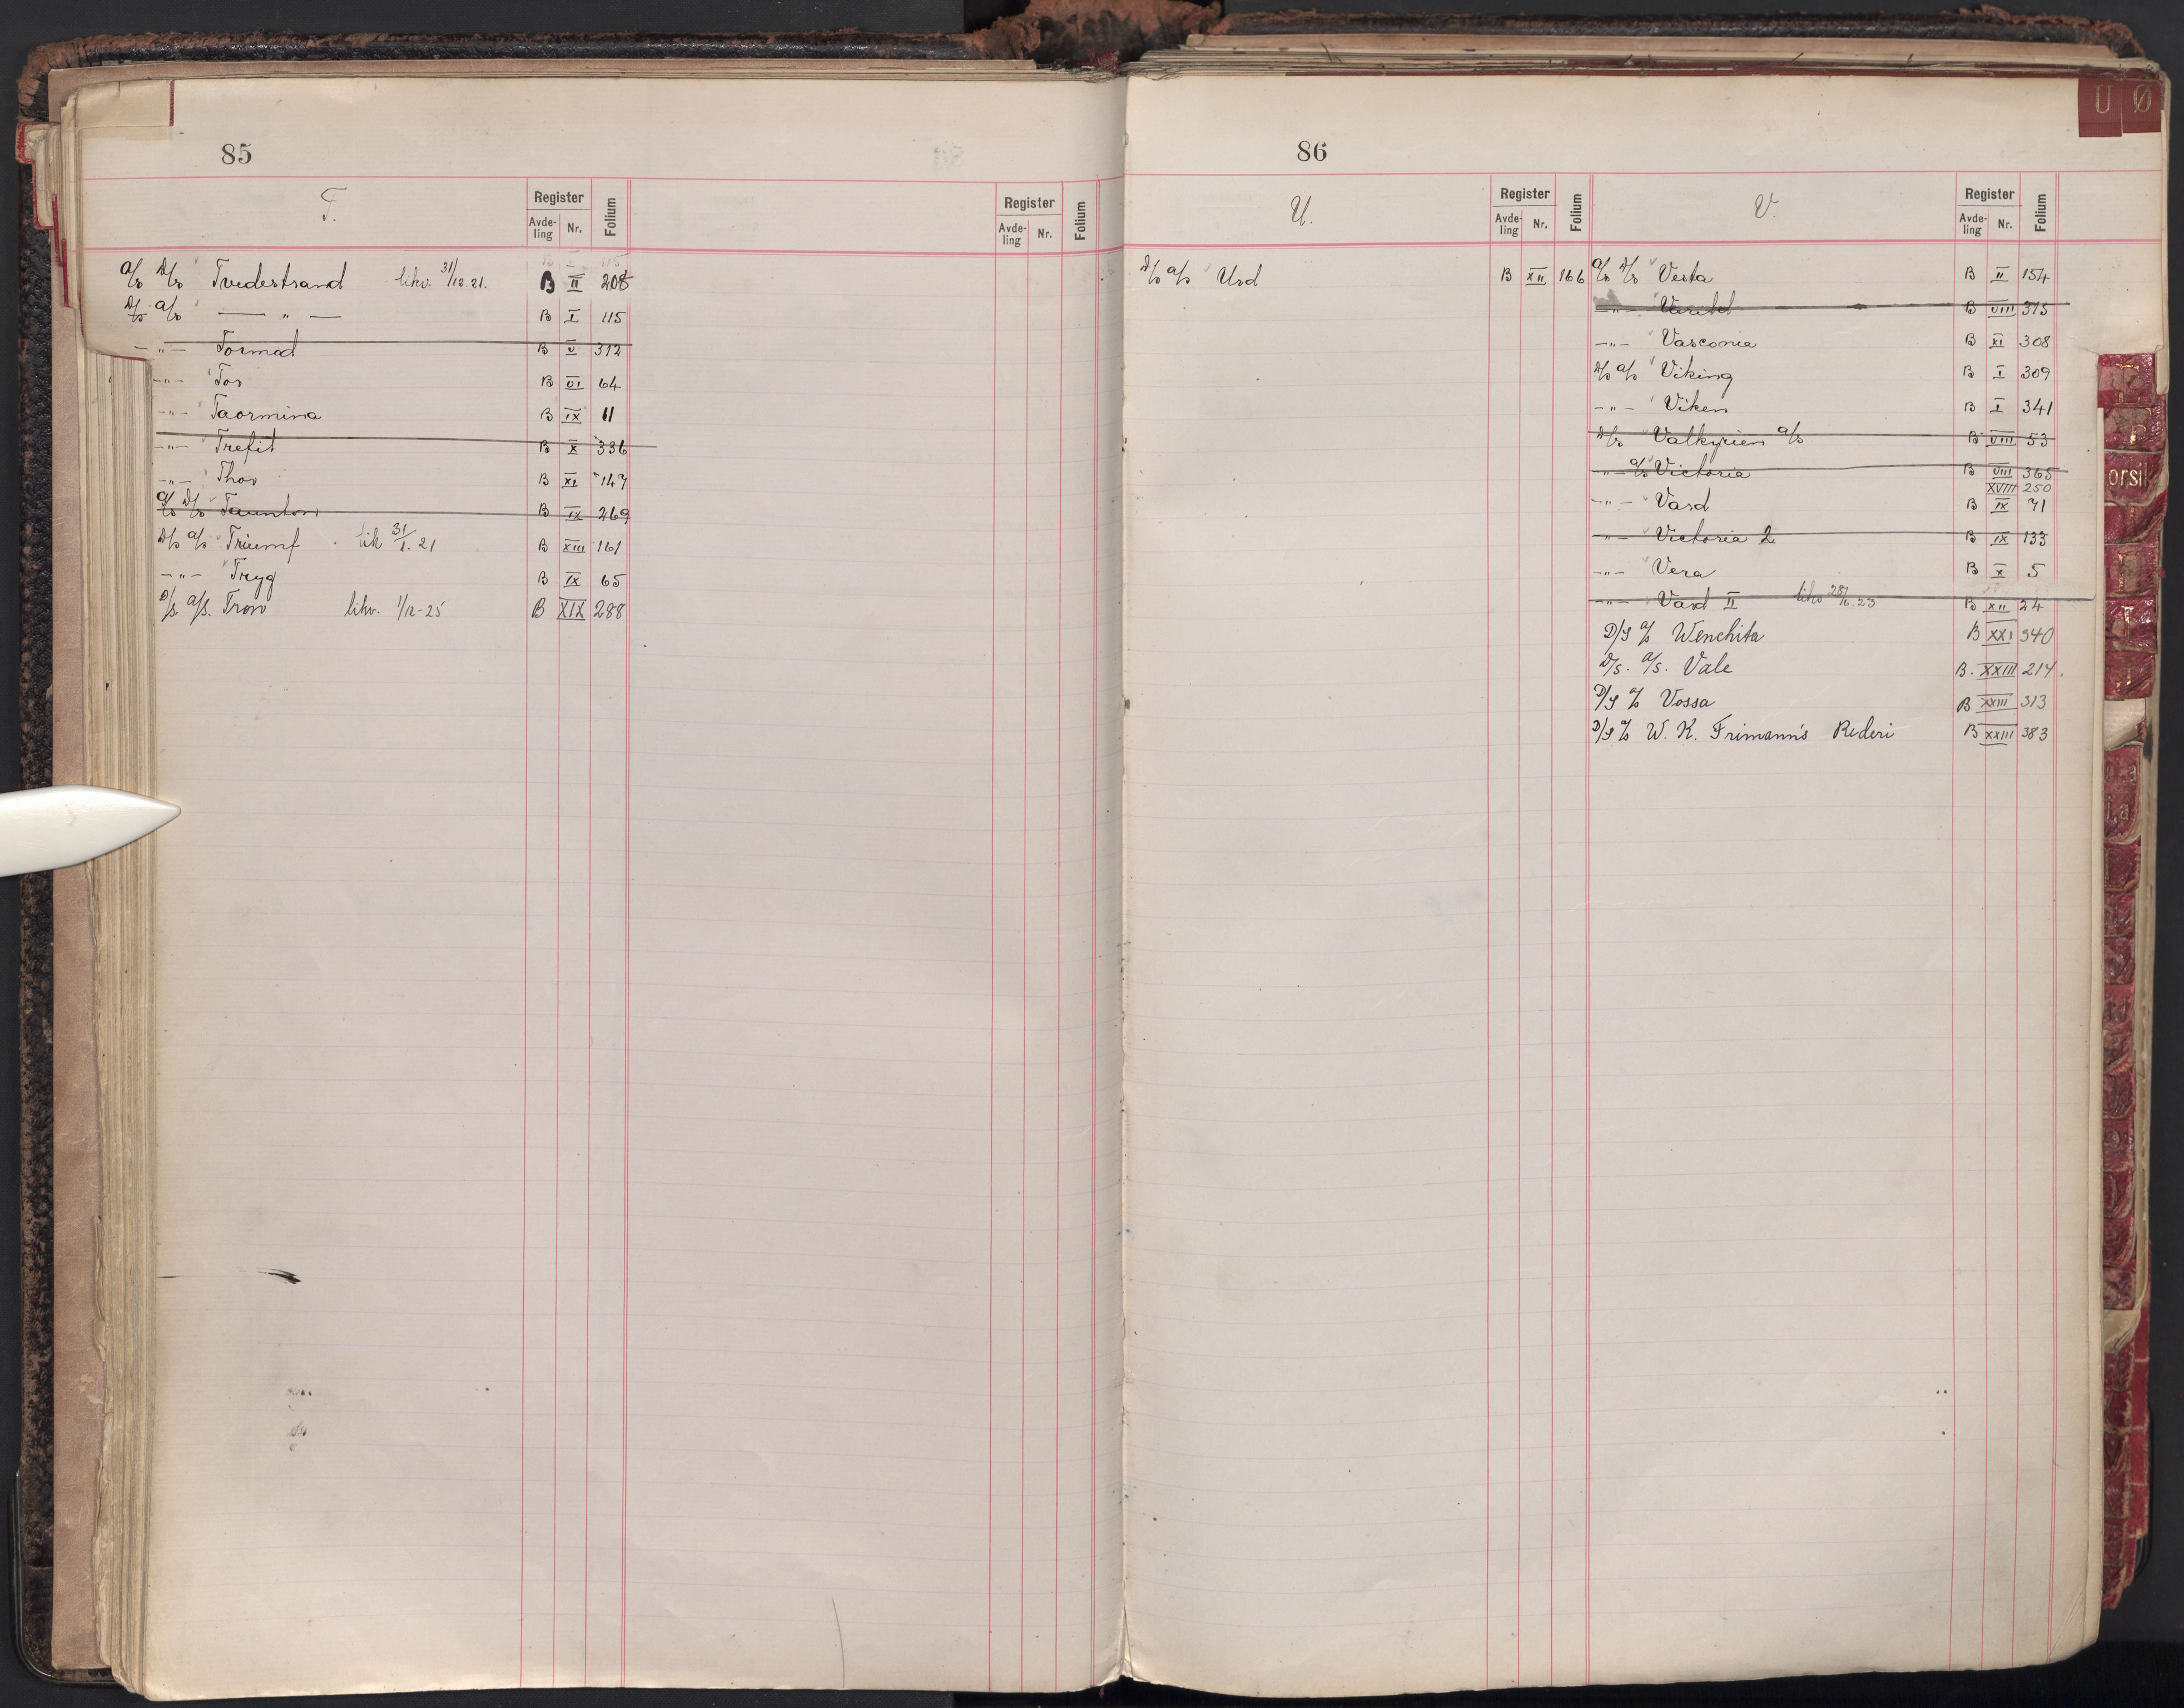 85
T.
Register
Avde-
ling
Nr.
Folium
Register
Avde-
ling
Nr.
Folium
B I 115
A/S D/S Tvedestrand likv. 31/12.21. B II 208
D/S A/S — " — B I 115
— " — Tormod B V 312
— " — Tor B VI 64
— " — Taormina B IX 11
— " — Trefit B X 336
— " — Thor B XI 147
A/S D/S Taunton B IX 269
D/S A/S Triumf lik 31/1.21 B XIII 161
— " — Tryg B IX 65
D/S. A/S. Tron likv. 1/12-25 B XIX 288
86
U Ø
U.
Register
Avde-
ling
Nr.
Folium
V.
Register
Avde-
ling
Nr.
Folium
D/S A/S Urd B XII 166
A/S D/S Vesta B II 154
— " — B VIII 315
— " — Vasconia B XI 308
D/S A/S Viking B I 309
— " — Viken B I 341
D/S Valkyrien A/S B VIII 53
— " — A/S Victoria B VIII 365
XVIII 250
— " — Vard B IX 71
— " — Victoria 2 B IX 133
— " — Vera B X 5
— " — Vard II likv 28/6.23 B XII 24
D/S A/S Wenchita B XXI 340
D/S. A/S. Vale B. XXIII 214.
D/S A/S Vossa B XXIII 313
D/S A/S W. K. Frimann's Rederi B XXIII 383
orsik